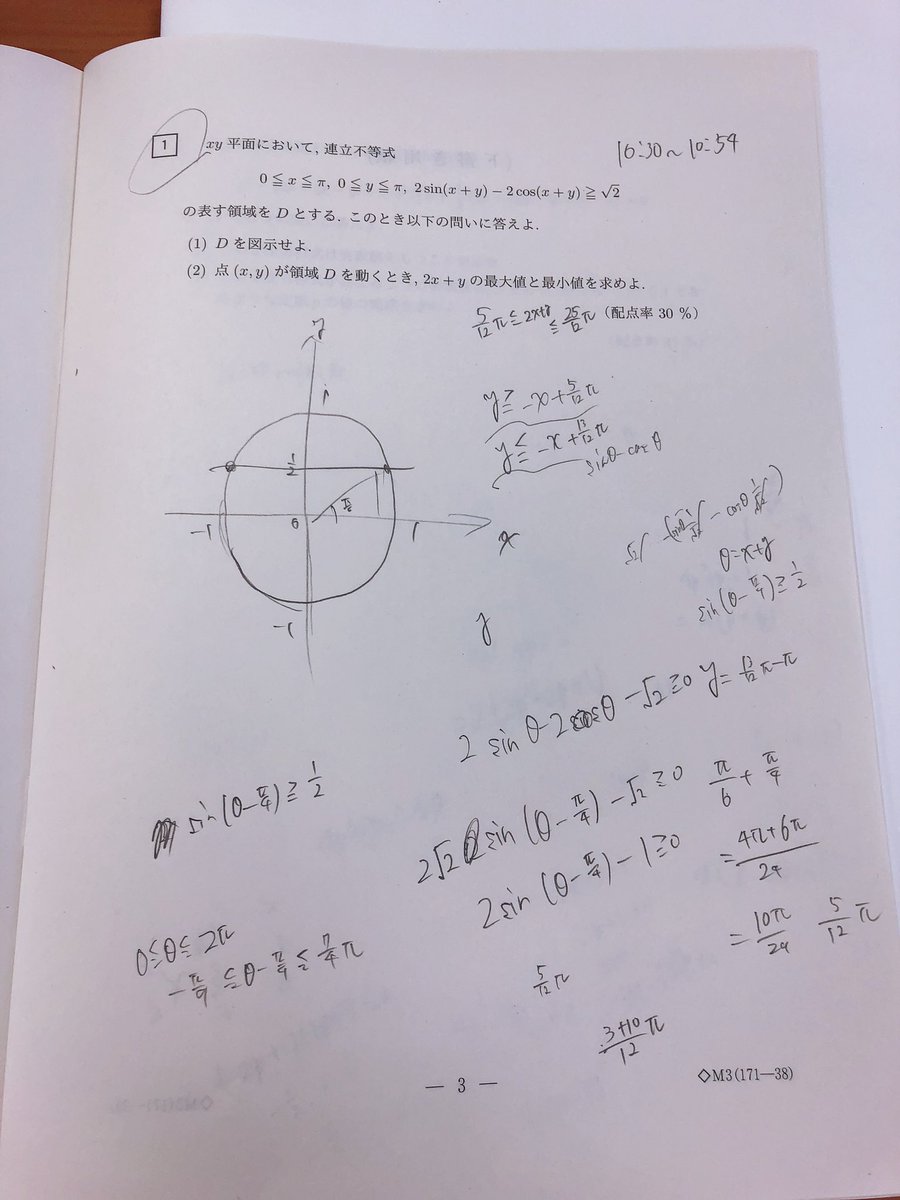 1 xy 平面において, 連立不等式
10:30~10:54
0 ≦ x ≦ π, 0 ≦ y ≦ π, 2 sin(x + y) − 2 cos(x + y) ≧ √2
の表す領域を D とする. このとき以下の問いに答えよ.
(1) D を図示せよ.
(2) 点 (x, y) が領域 D を動くとき, 2x + y の最大値と最小値を求めよ.
(配点率 30 %)
5/12 π ≦ 2x+y ≦ 25/12 π
y
1
y ≧ -x + 5/12 π
y ≦ -x + 13/12 π
sinθ - cosθ
1/2
-1 0 1
x
θ = x+y
sin(θ - π/4) ≧ 1/2
-1
y
2 sinθ - 2cosθ - √2 ≧ 0
y = 13/12 π - π
sin(θ - π/4) ≧ 1/2
2√2 sin(θ - π/4) - √2 ≧ 0
π/6 + π/4
2sin(θ - π/4) - 1 ≧ 0
= 4π+6π/24
0 ≦ θ ≦ 2π
= 10π/24 5/12 π
-π/4 ≦ θ - π/4 ≦ 7/4 π
5/12 π
3+10/12 π
— 3 —
◇M3(171—38)